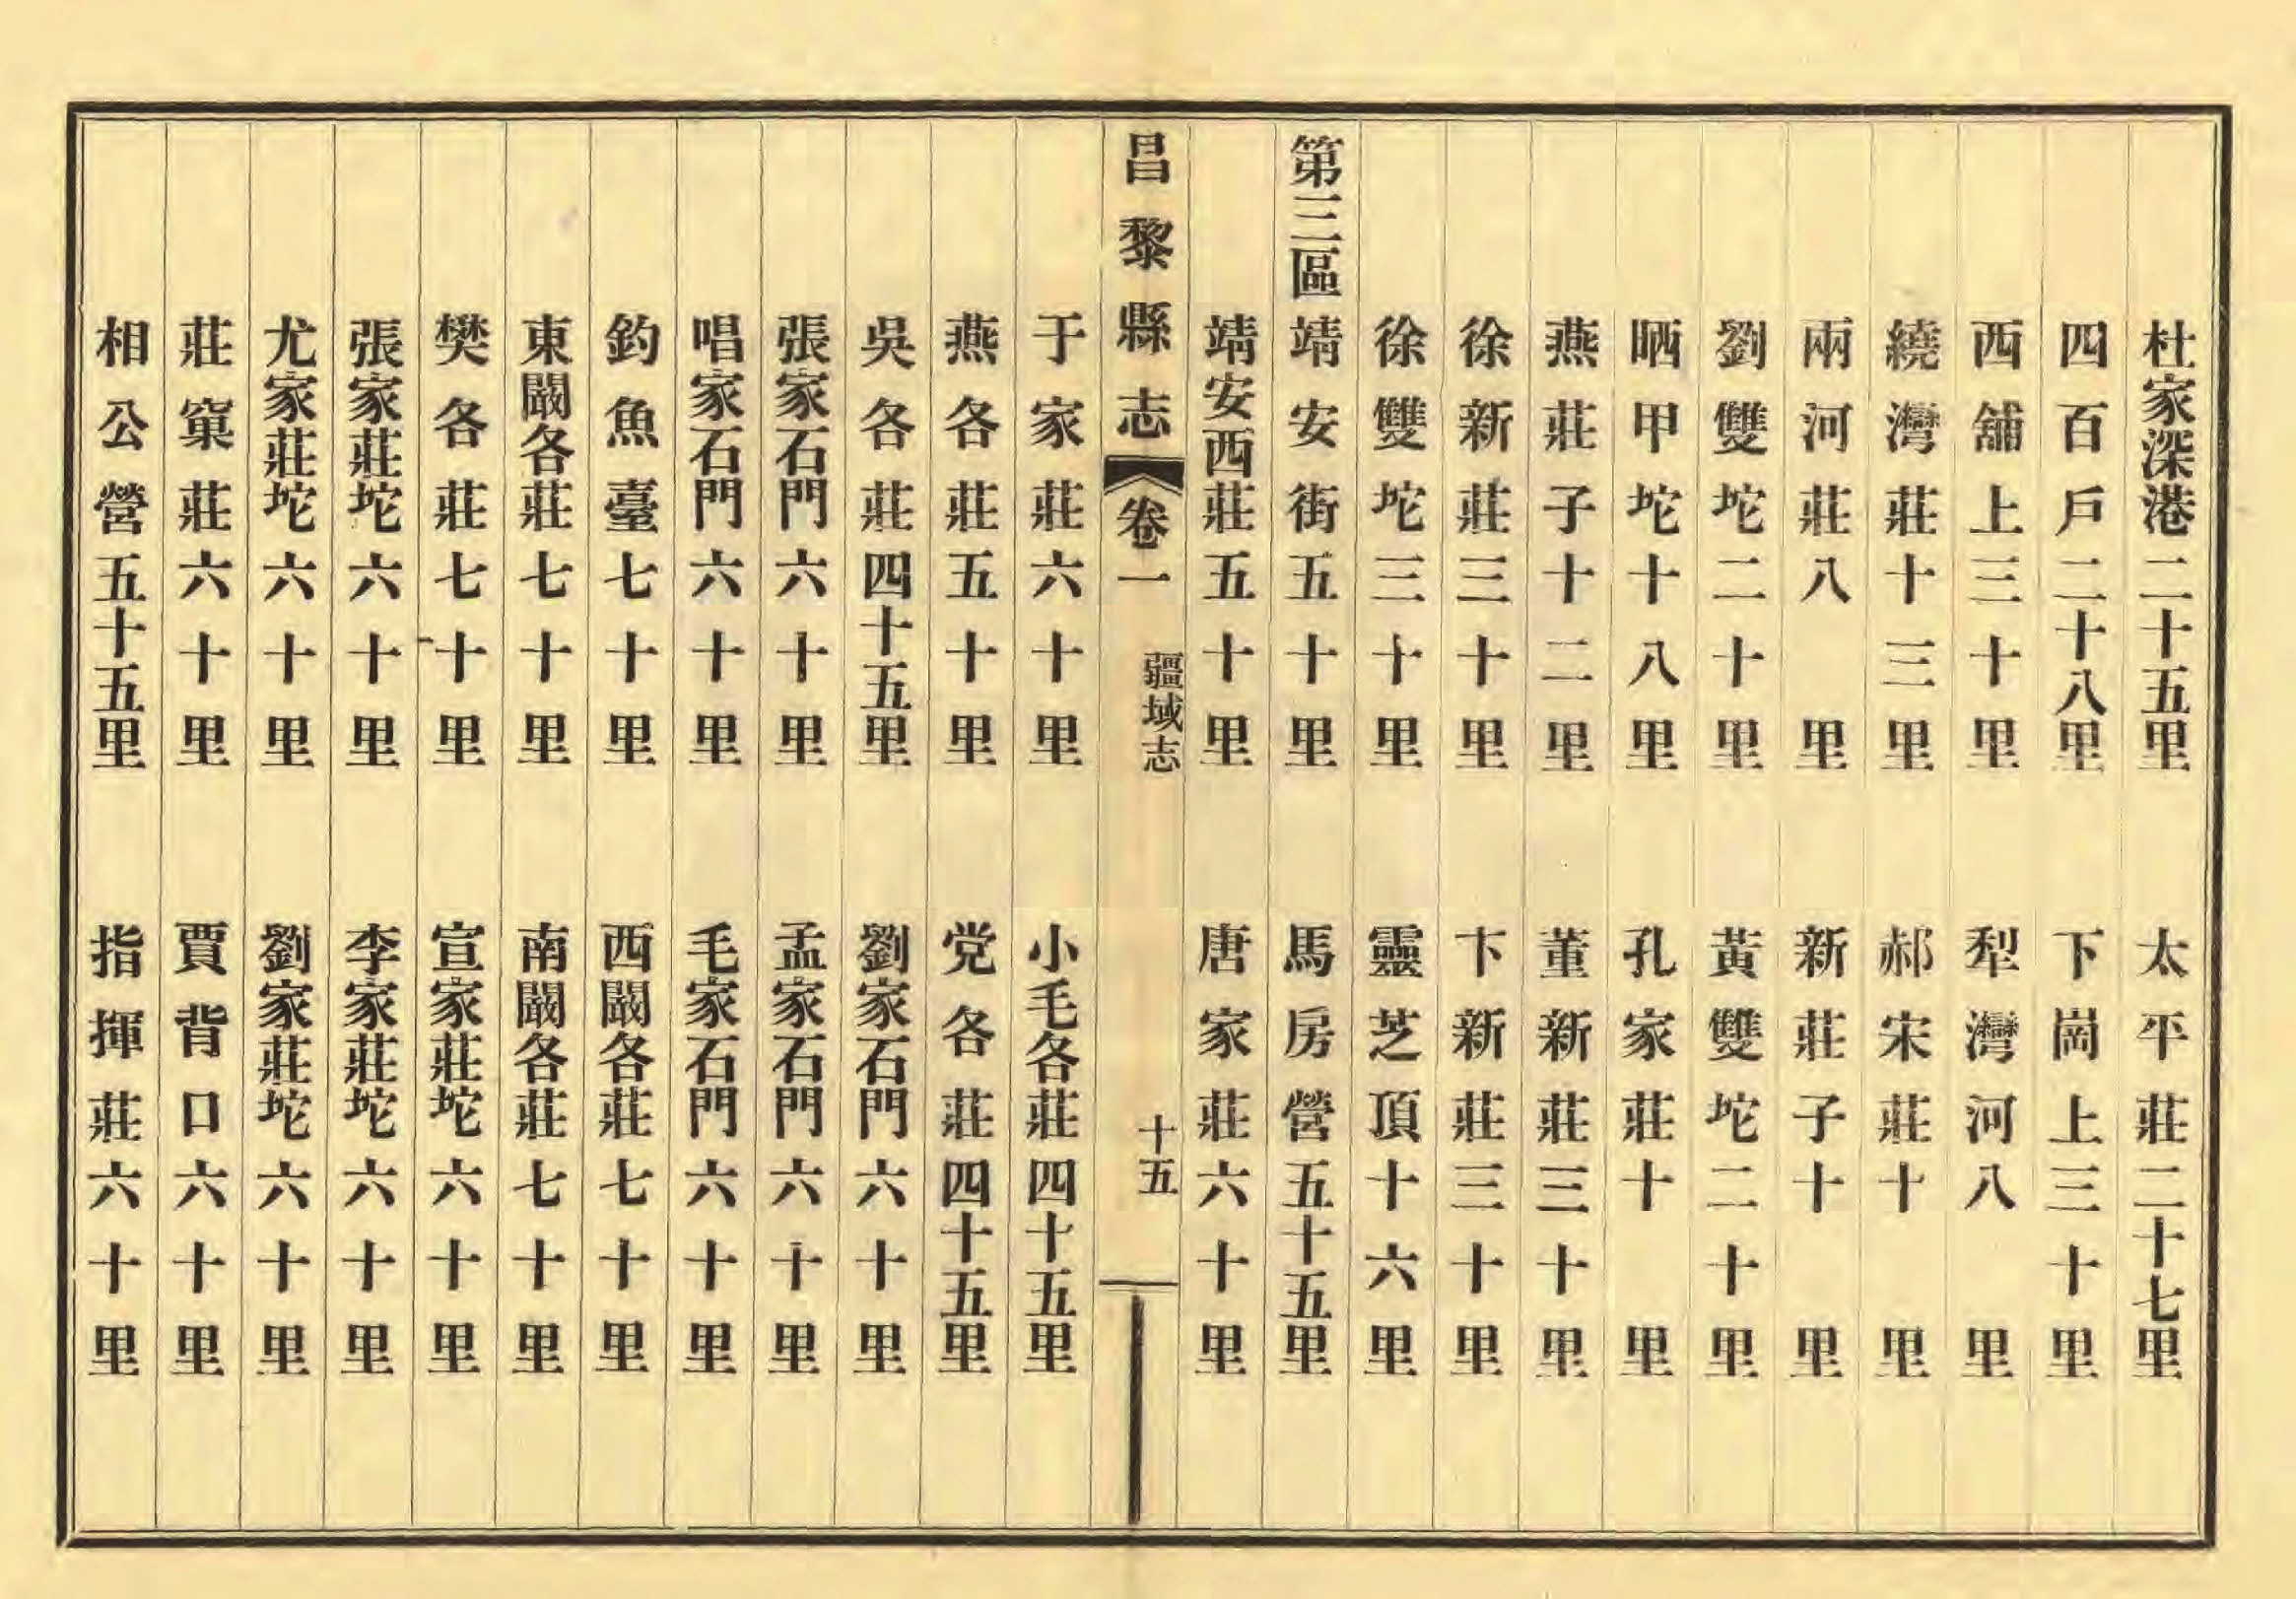 杜家深港二十五里　太平莊二十七里
四百戶二十八里　下崗上三十里
西舖上三十里　犁灣河八里
繞灣莊十三里　郝宋莊十里
兩河莊八里　新莊子十里
劉雙坨二十里　黃雙坨二十里
晒甲坨十八里　孔家莊十里
燕莊子十二里　董新莊三十里
徐新莊三十里　卞新莊三十里
徐雙坨三十里　靈芝頂十六里
第三區　靖安街五十里　馬房營五十五里
靖安西莊五十里　唐家莊六十里
昌黎縣志　卷一　疆域志　十五
于家莊六十里　小毛各莊四十五里
燕各莊五十里　党各莊四十五里
吳各莊四十五里　劉家石門六十里
張家石門六十里　孟家石門六十里
唱家石門六十里　毛家石門六十里
釣魚臺七十里　西闞各莊七十里
東闞各莊七十里　南闞各莊七十里
樊各莊七十里　宣家莊坨六十里
張家莊坨六十里　李家莊坨六十里
尤家莊坨六十里　劉家莊坨六十里
莊窠莊六十里　賈背口六十里
相公營五十五里　指揮莊六十里